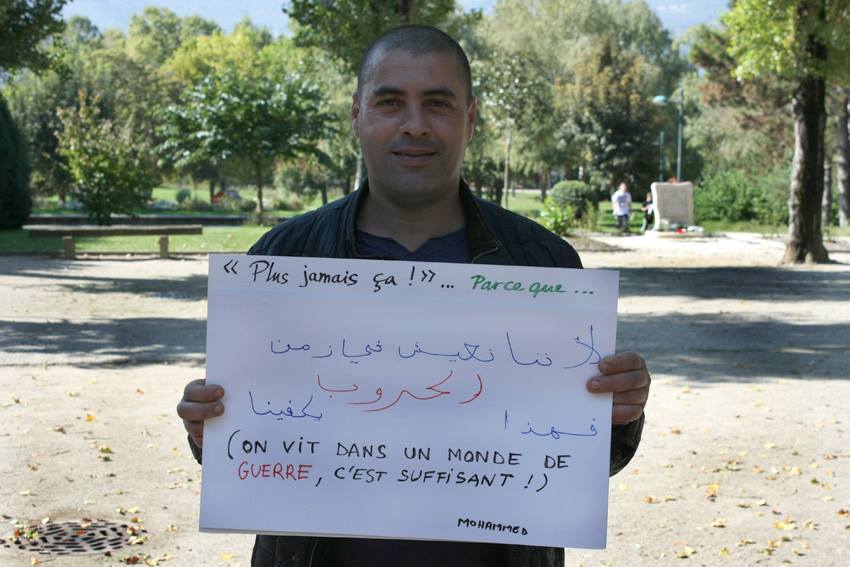 « Plus jamais ça ! » ... Parce que ...
لأننا نعيش في زمن
الحروب
فهذا يكفينا
(ON VIT DANS UN MONDE DE
GUERRE, C'EST SUFFISANT !)
MOHAMMED